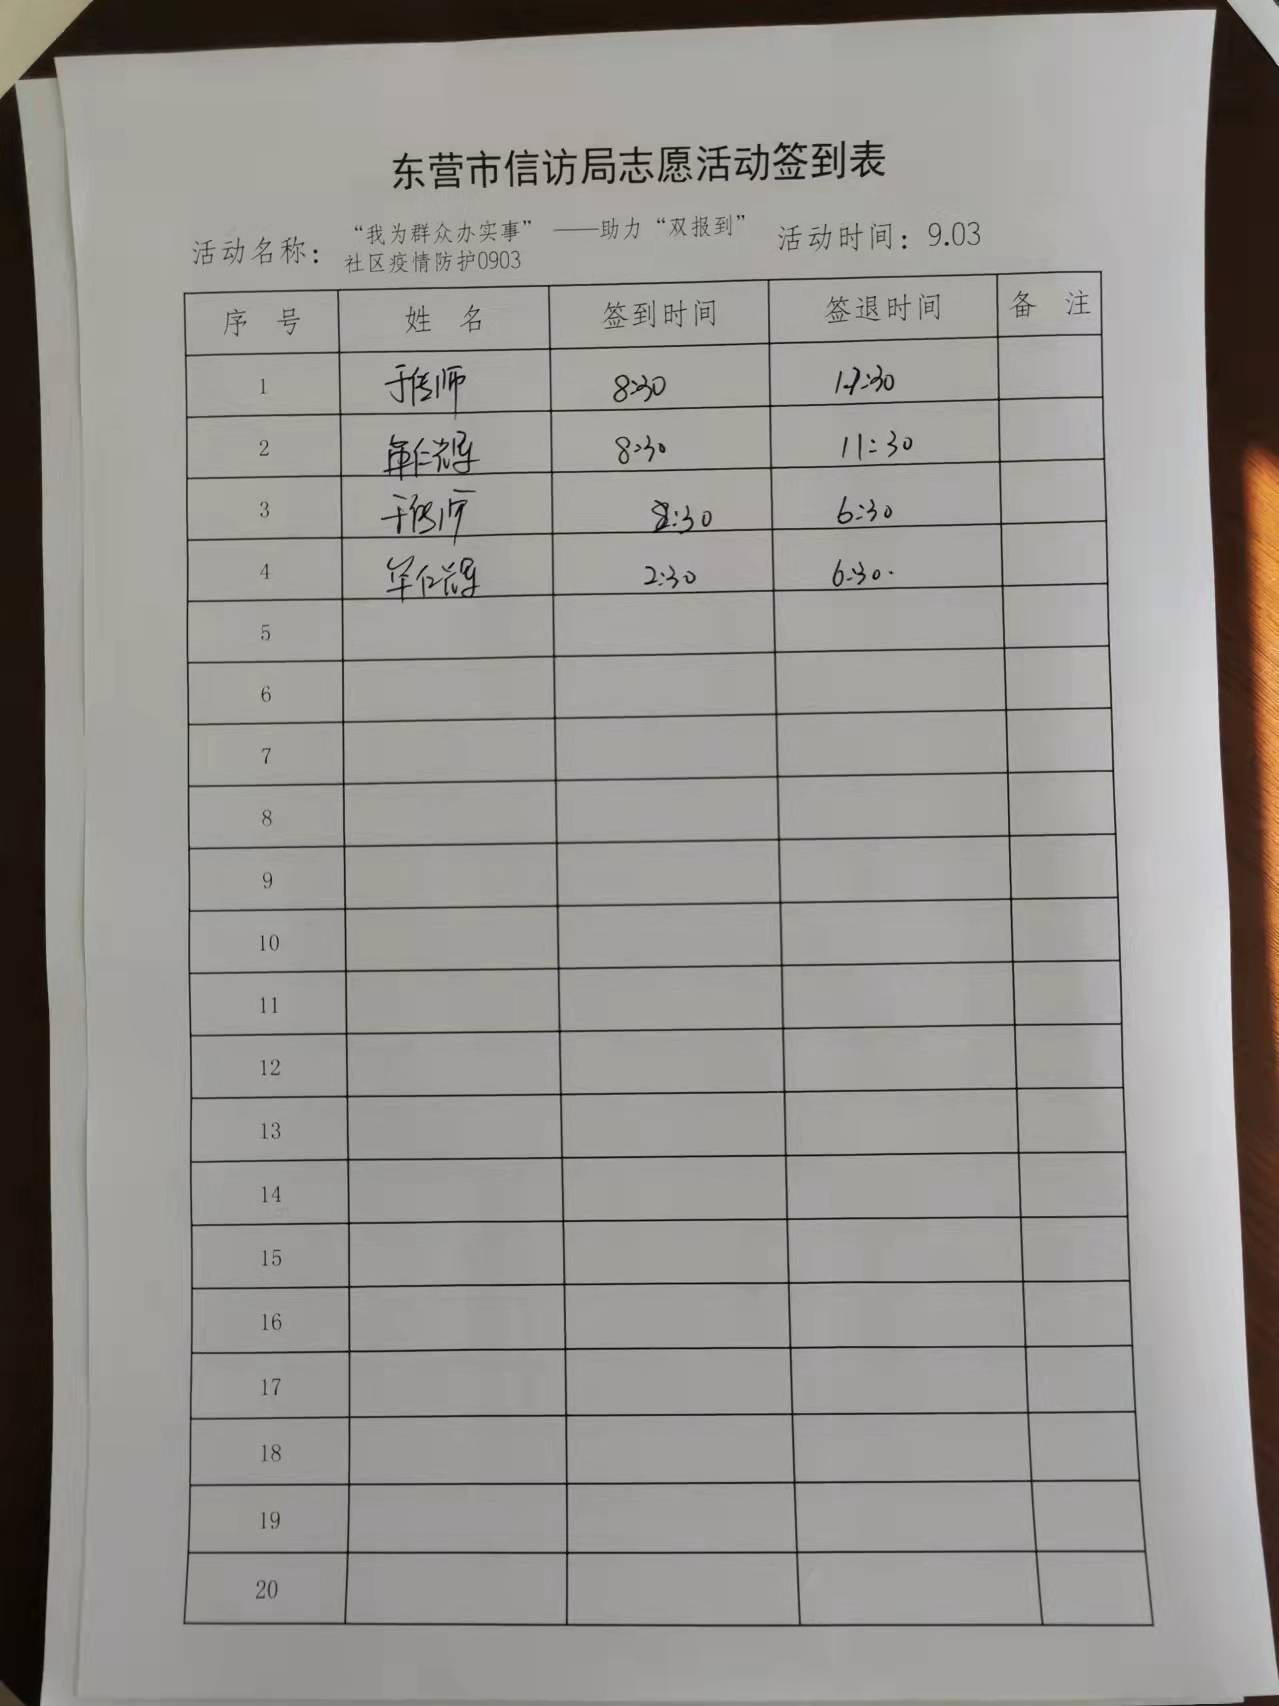 东营市信访局志愿活动签到表
活动名称： “我为群众办实事” ——助力“双报到” 社区疫情防护0903 活动时间：9.03
序 号 姓 名 签到时间 签退时间 备 注
1 于传师 8:30
2 8:30 11:30
3 于传师 :30 6:30
4 2:30 6:30.
5
6
7
8
9
10
11
12
13
14
15
16
17
18
19
20